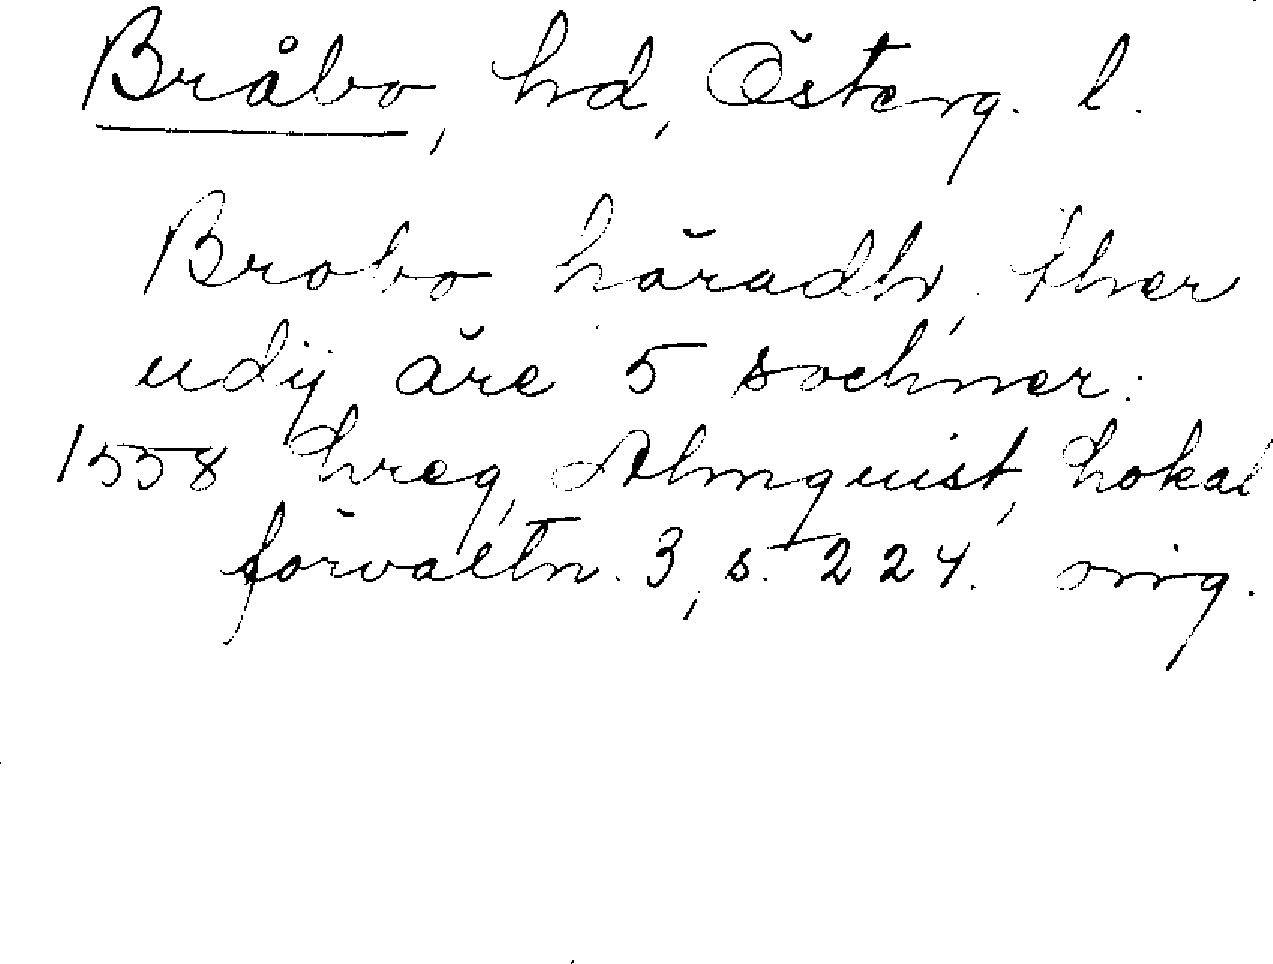 Bråbo, hd, Österg. l.
Brobo häradh, ther
udij äre 5 sochner.
1558 hreg, Almquist, Lokal
förvaltn. 3, s. 224. orig.